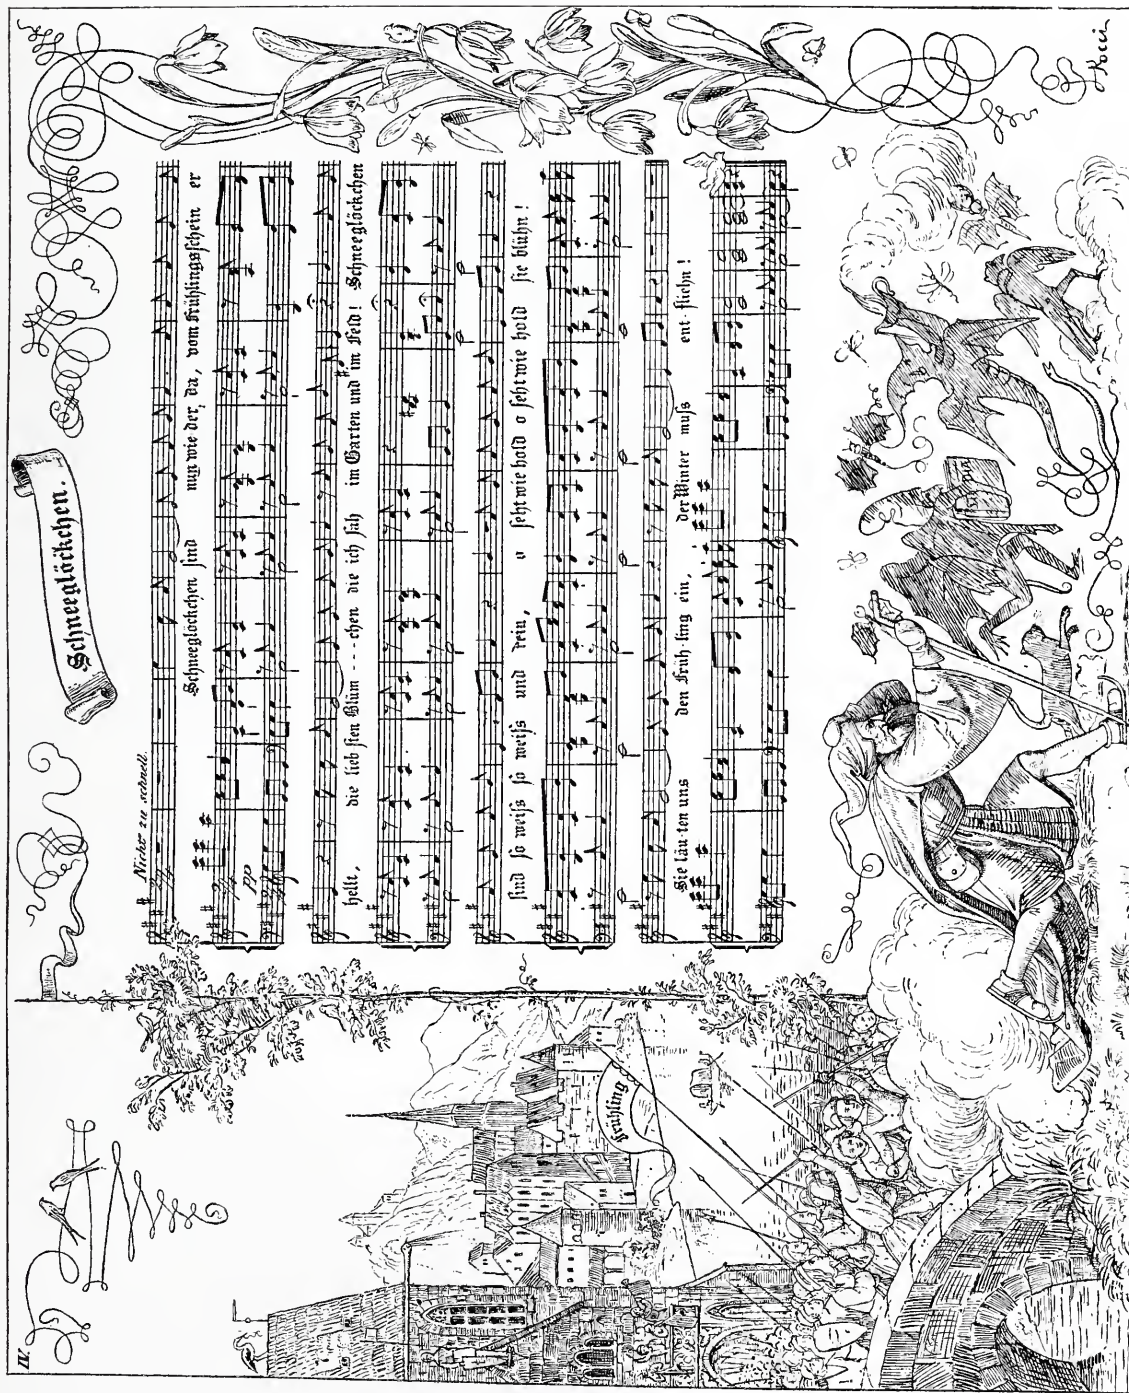 IV.
Schneeglöckchen.
Nicht zu schnell.
Schneeglöckchen sind nun wie der, da, vom Frühlingsschein er
pp
hellt, die lieb sten Blüm - - - chen die ich säh im Garten und im Feld! Schneeglöckchen
sind so weiss so weiss und rein, o seht wie hold o seht wie hold sie blühn!
Sie läu-ten uns den Früh-ling ein, der Winter muss ent-fliehn!
Frühling
Pocci